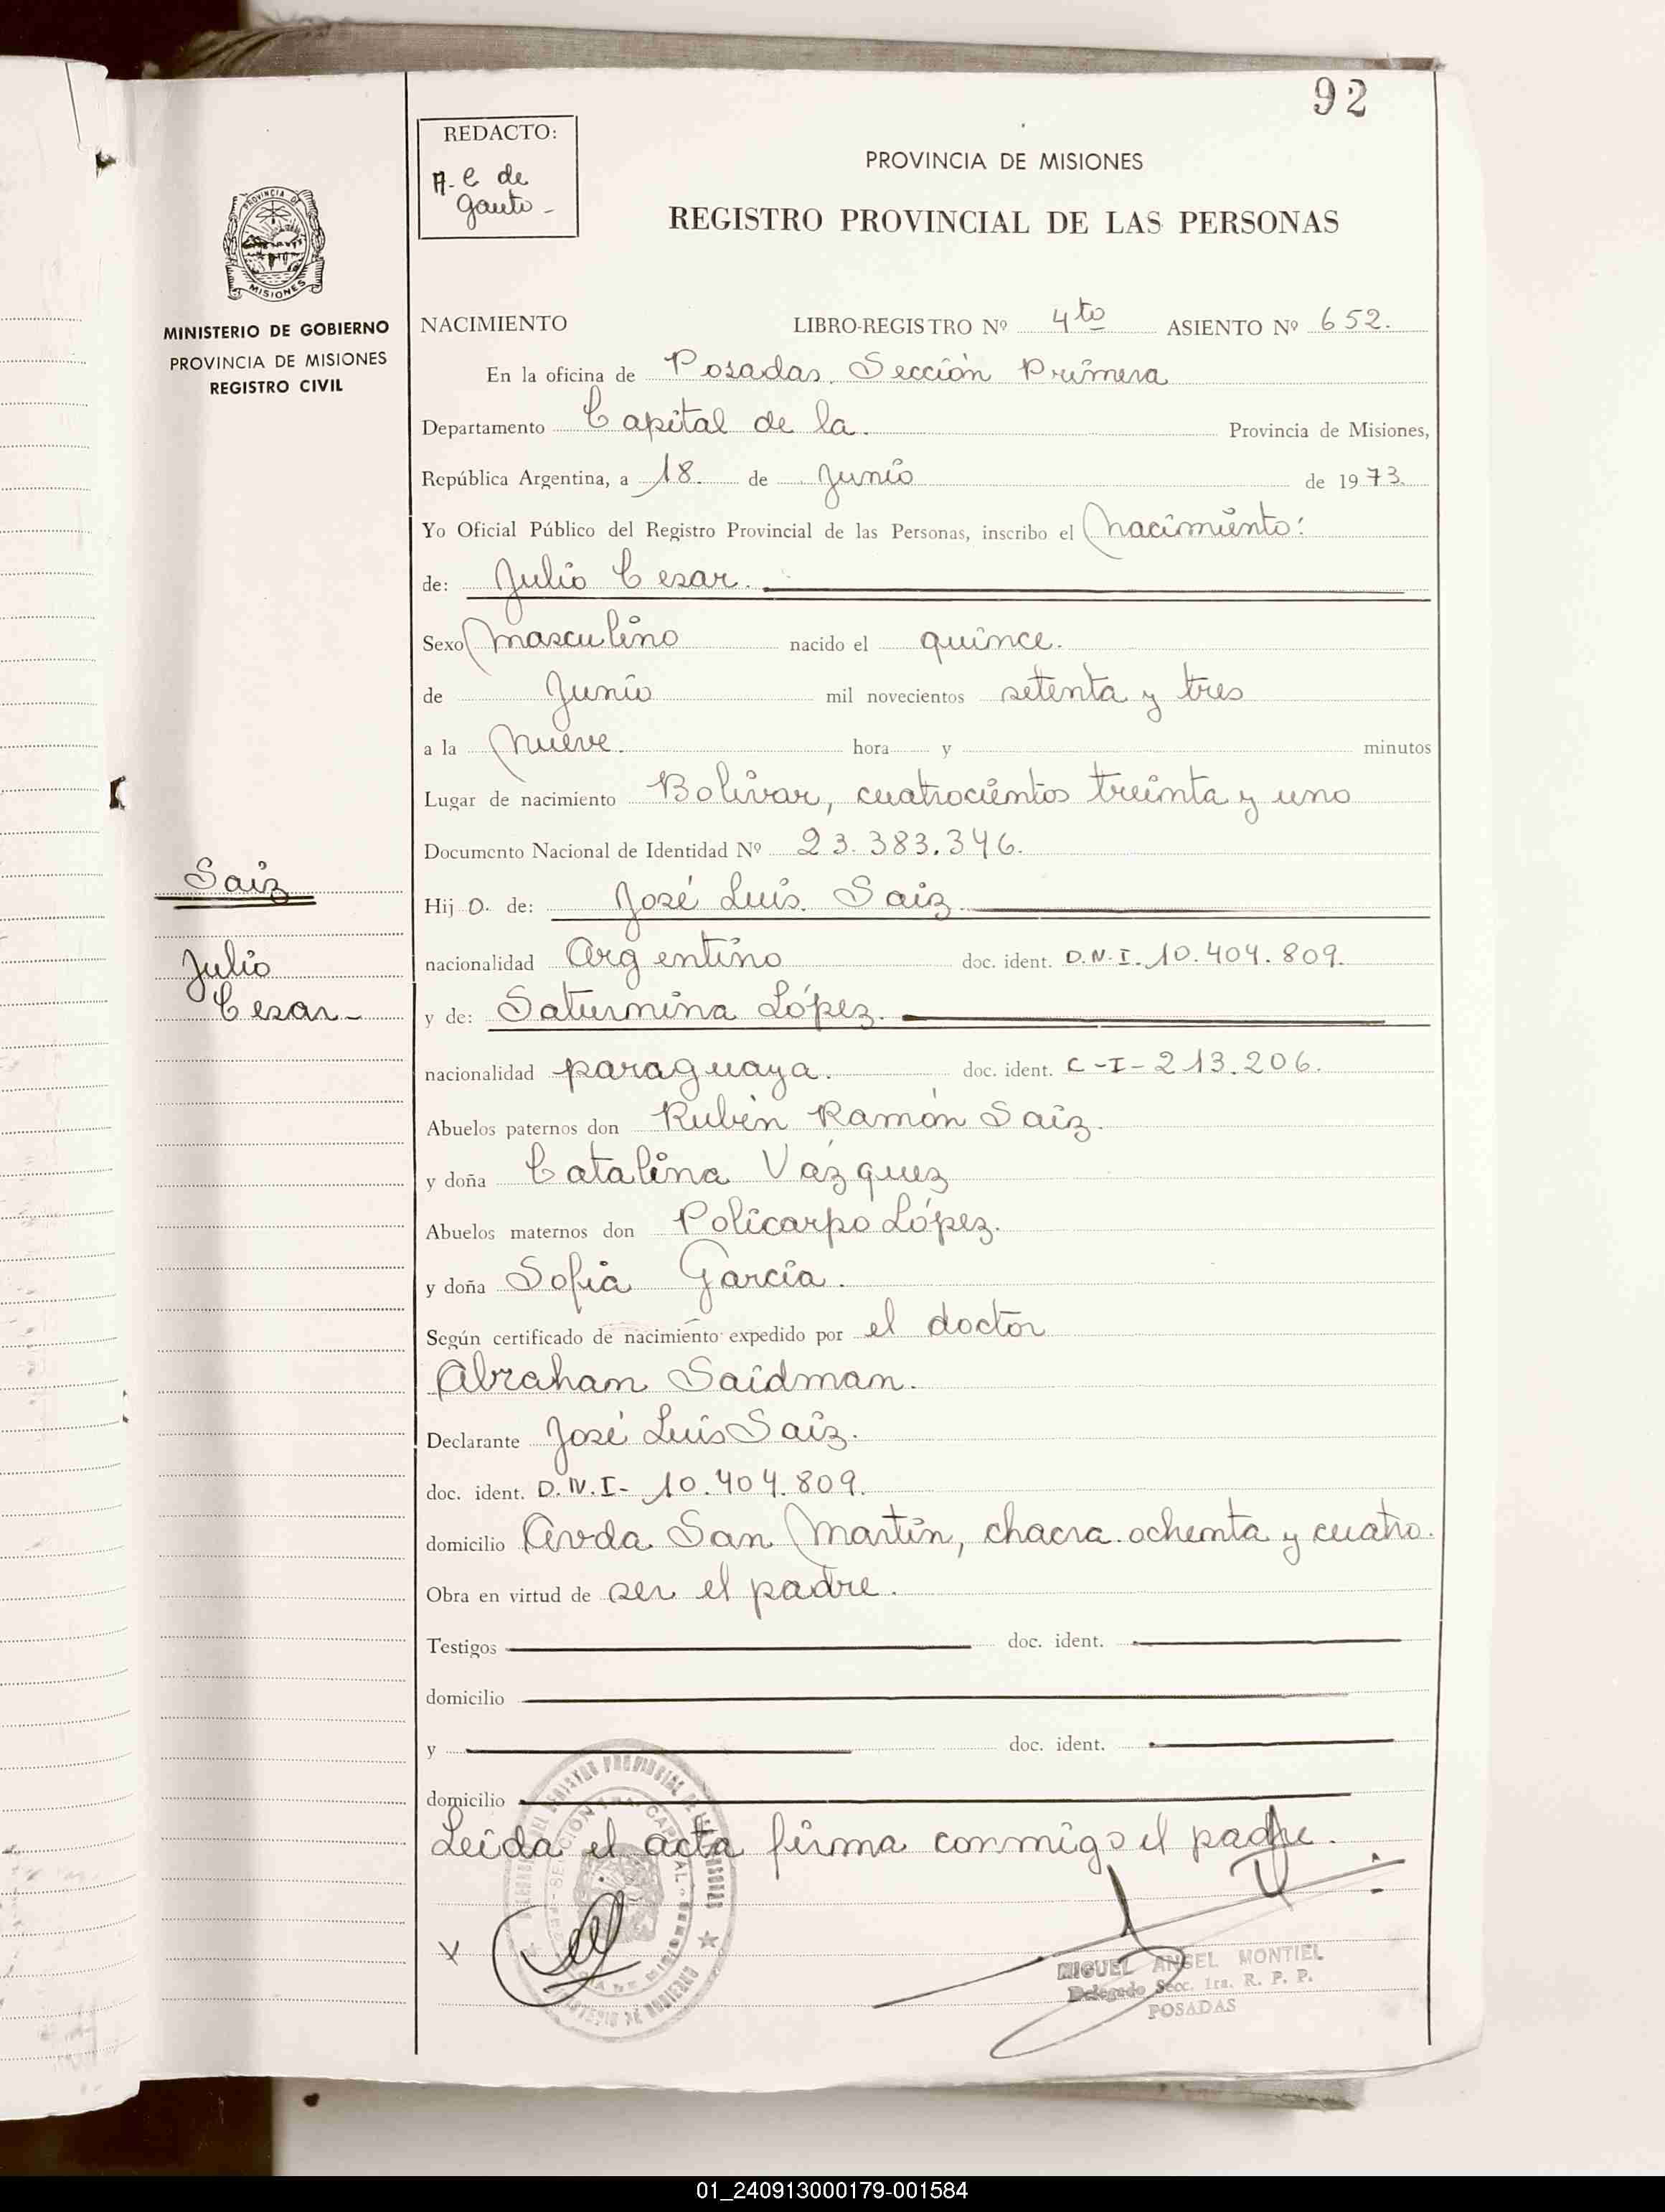 92
REDACTO:
A. C de
Gauto -
PROVINCIA DE MISIONES
REGISTRO PROVINCIAL DE LAS PERSONAS
PROVINCIA DE
MISIONES
MINISTERIO DE GOBIERNO
PROVINCIA DE MISIONES
REGISTRO CIVIL
NACIMIENTO LIBRO-REGISTRO Nº 4to ASIENTO Nº 652.
En la oficina de Posadas. Sección Primera
Departamento Capital de la. Provincia de Misiones,
República Argentina, a 18. de Junio de 1973.
Yo Oficial Público del Registro Provincial de las Personas, inscribo el Nacimiento:
de: Julio Cesar.
Sexo Masculino nacido el quince.
de Junio mil novecientos setenta y tres
a la Nueve. hora y minutos
Lugar de nacimiento Bolivar, cuatrocientos treinta y uno
Documento Nacional de Identidad Nº 23.383.346.
Saiz
Hijo. de: José Luis. Saiz.
Julio
Cesar-
nacionalidad Argentino doc. ident. D.N.I. 10.404.809.
y de: Saturnina López.
nacionalidad paraguaya. doc. ident. C-I-213.206.
Abuelos paternos don Rubén Ramón Saiz.
y doña Catalina Vázquez
Abuelos maternos don Policarpo López.
y doña Sofia García.
Según certificado de nacimiento expedido por el doctor
Abraham Saidman.
Declarante José Luis Saiz.
doc. ident. D.N.I- 10.404.809.
domicilio Avda San Martín, chacra ochenta y cuatro.
Obra en virtud de ser el padre.
Testigos doc. ident.
domicilio
y doc. ident.
domicilio
Leida el acta firma conmigo el padre.
X
MIGUEL ANGEL MONTIEL
Delegado Secc. 1ra. R. P. P.
POSADAS
01_240913000179-001584